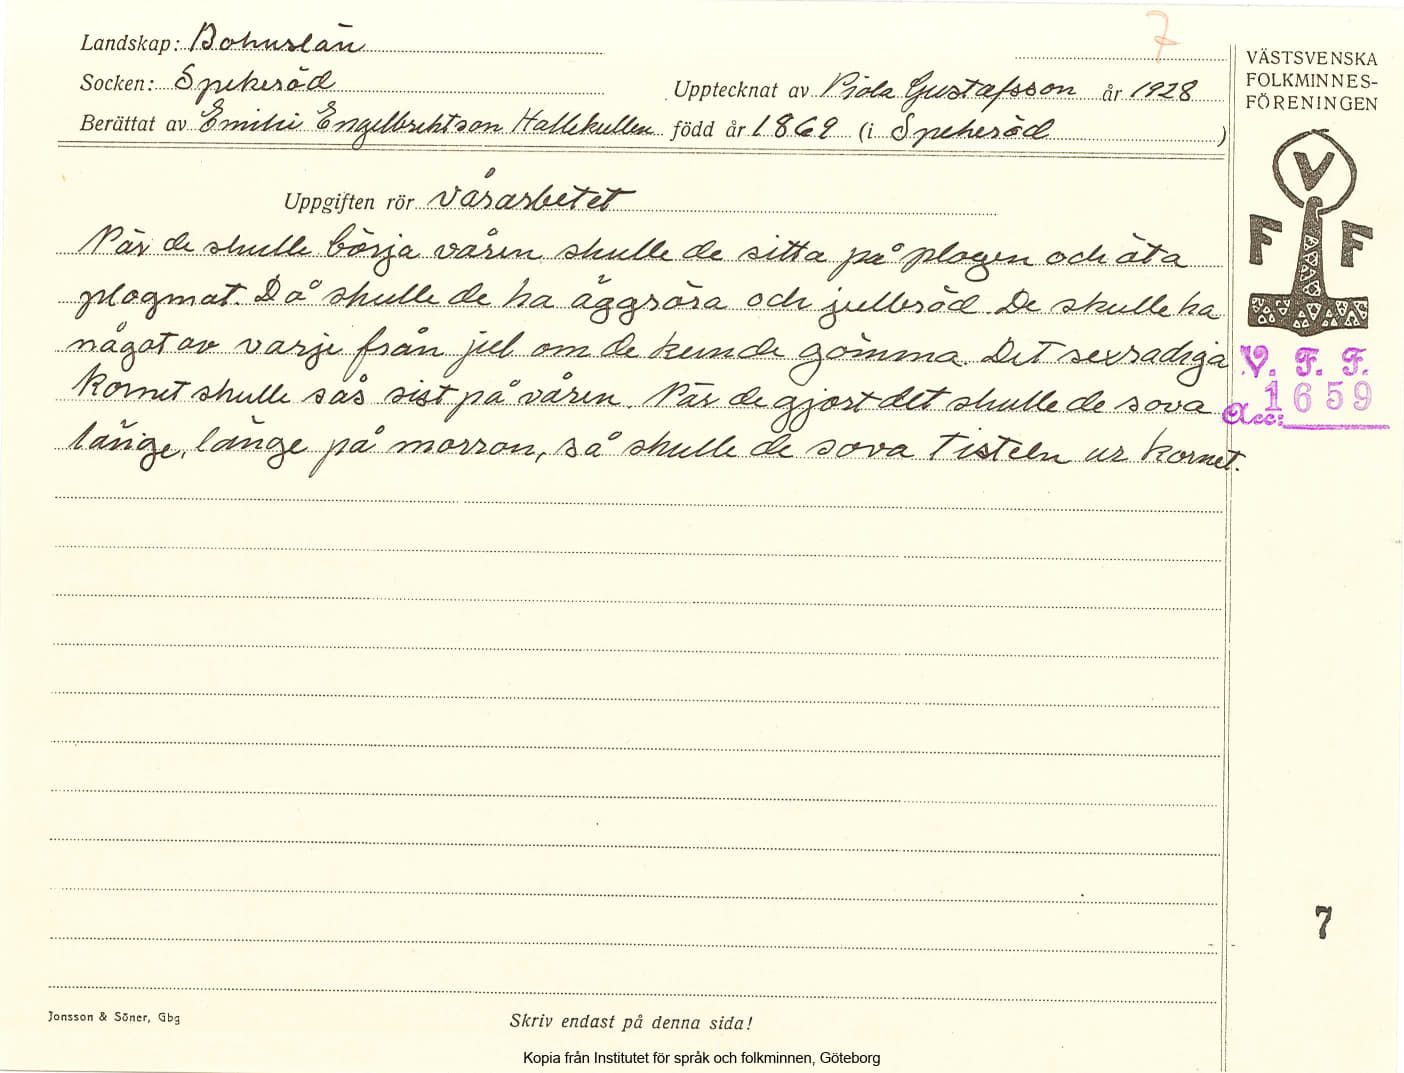 7
Landskap: Bohuslän
Socken: Spekeröd
Upptecknat av Viola Gustafsson år 1928
Berättat av Emilie Engelbrektson Hallekullen född år 1869 (i Spekeröd )
VÄSTSVENSKA
FOLKMINNES-
FÖRENINGEN
V
F F
Uppgiften rör vårarbetet
När de skulle börja våren skulle de sitta på plogen och äta
plogmat. Då skulle de ha äggröra och julbröd. De skulle ha
något av varje från jul om de kunde gömma. Det sexradiga
kornet skulle sås sist på våren. När de gjort det skulle de sova
länge, länge på morron, så skulle de sova tisteln ur kornet.
V. F. F.
Acc: 1659
7
Jonsson & Söner, Gbg
Skriv endast på denna sida!
Kopia från Institutet för språk och folkminnen, Göteborg